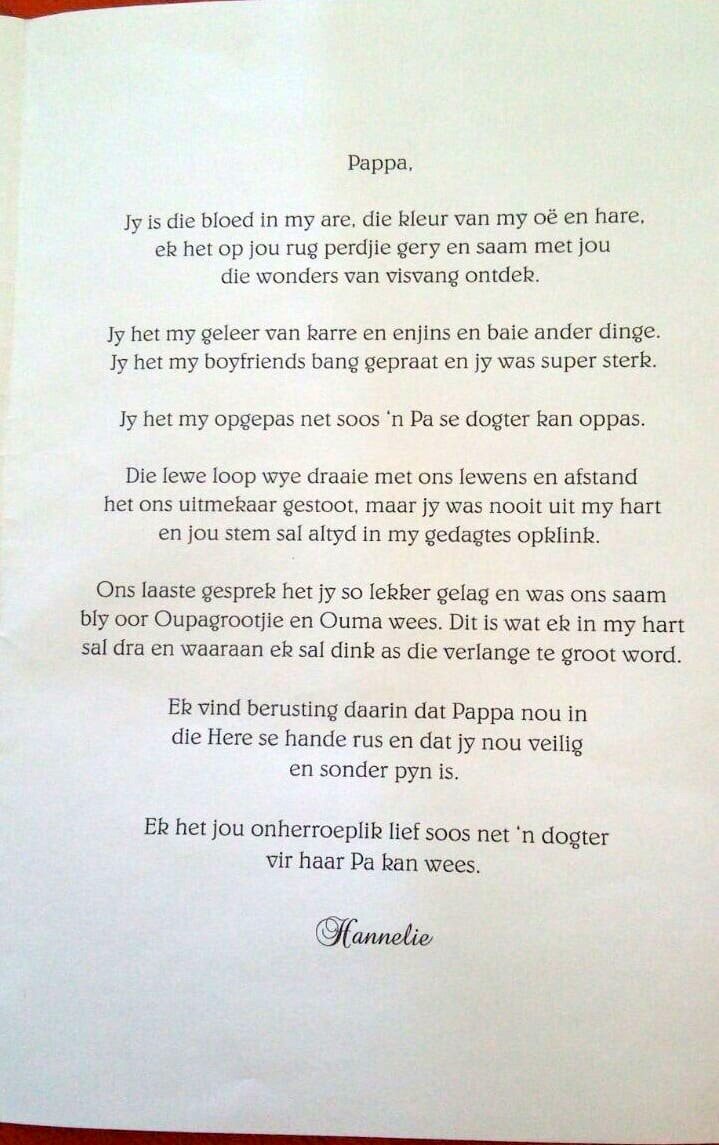 Pappa,
Jy is die bloed in my are, die kleur van my oë en hare,
ek het op jou rug perdjie gery en saam met jou
die wonders van visvang ontdek.
Jy het my geleer van karre en enjins en baie ander dinge.
Jy het my boyfriends bang gepraat en jy was super sterk.
Jy het my opgepas net soos 'n Pa se dogter kan oppas.
Die lewe loop wye draaie met ons lewens en afstand
het ons uitmekaar gestoot, maar jy was nooit uit my hart
en jou stem sal altyd in my gedagtes opklink.
Ons laaste gesprek het jy so lekker gelag en was ons saam
bly oor Oupagrootjie en Ouma wees. Dit is wat ek in my hart
sal dra en waaraan ek sal dink as die verlange te groot word.
Ek vind berusting daarin dat Pappa nou in
die Here se hande rus en dat jy nou veilig
en sonder pyn is.
Ek het jou onherroeplik lief soos net 'n dogter
vir haar Pa kan wees.
Hannelie